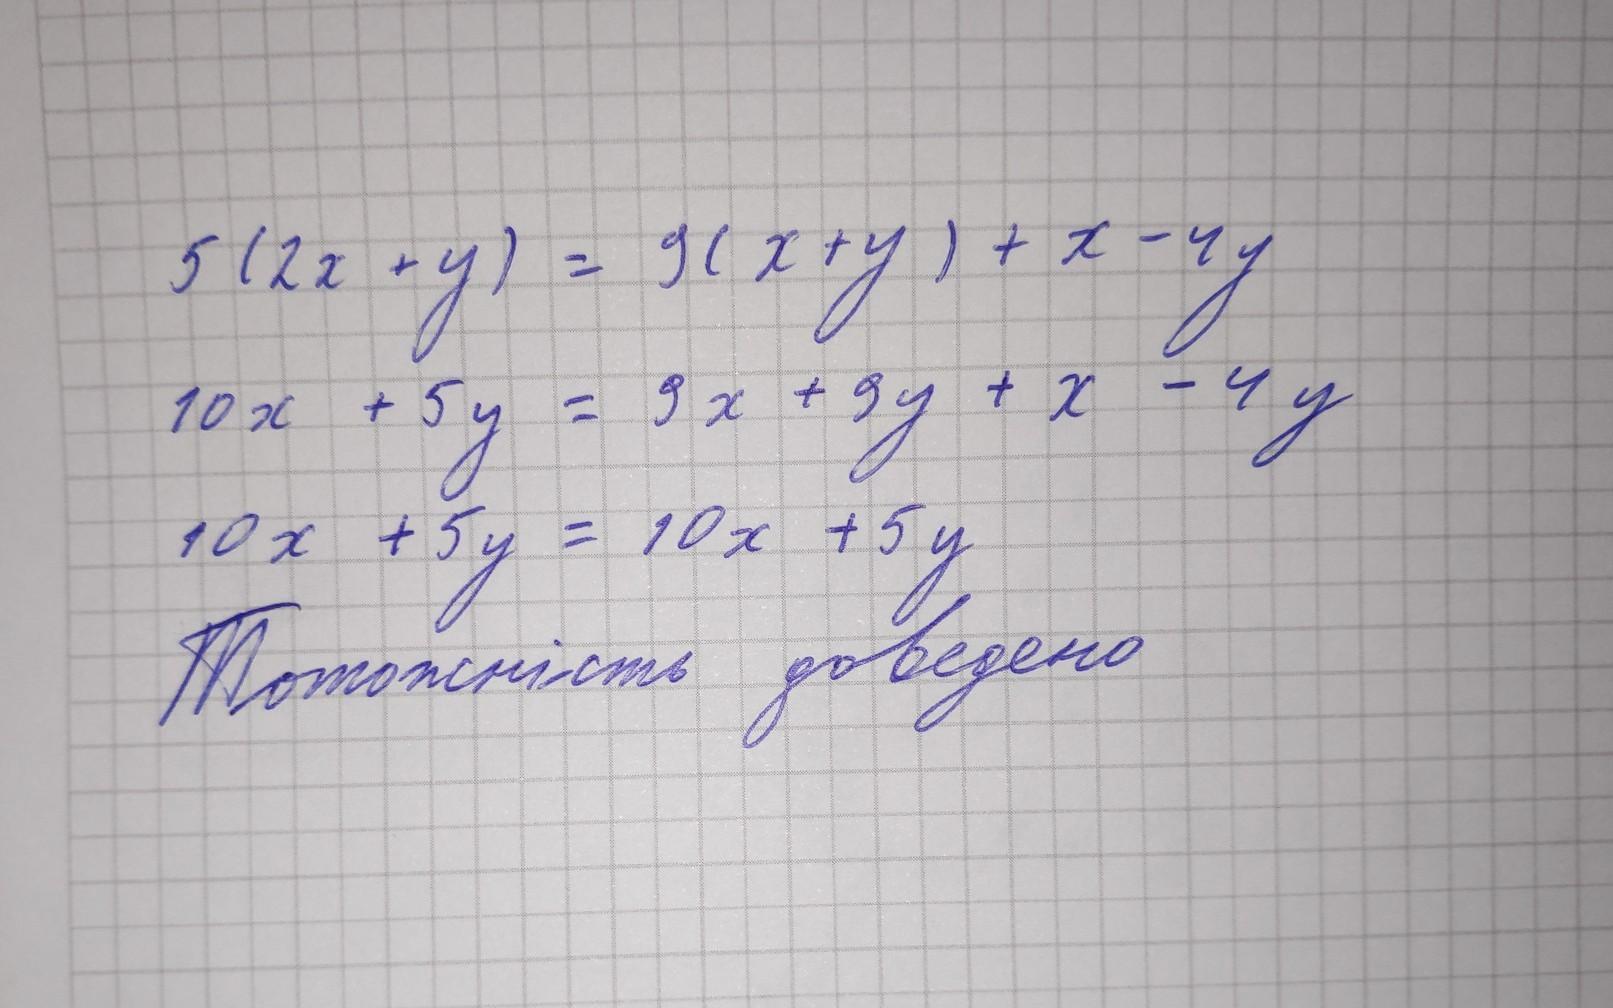 5(2x + y) = 9(x + y) + x - 4y
10x + 5y = 9x + 9y + x - 4y
10x + 5y = 10x + 5y
Тотожність доведено